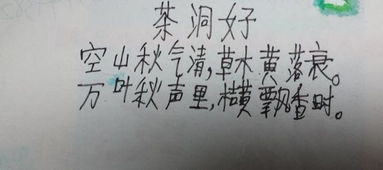 茶洞好
空山秋气清,草木黄落衰。
万叶秋声里,横飘香时。